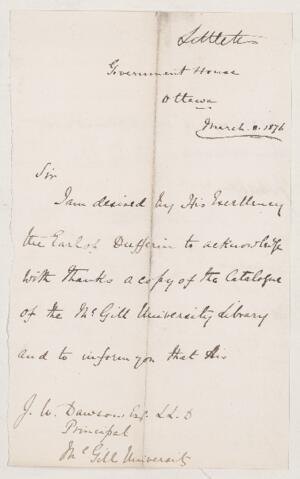 Government House
Ottawa
March. 8. 1876
Sir
I am desired by His Excellency
the Earl of Dufferin to acknowledge
with thanks a copy of the Catalogue
of the McGill University Library
and to inform you that His
J. W. Dawson Esq. LL.D
Principal
McGill University